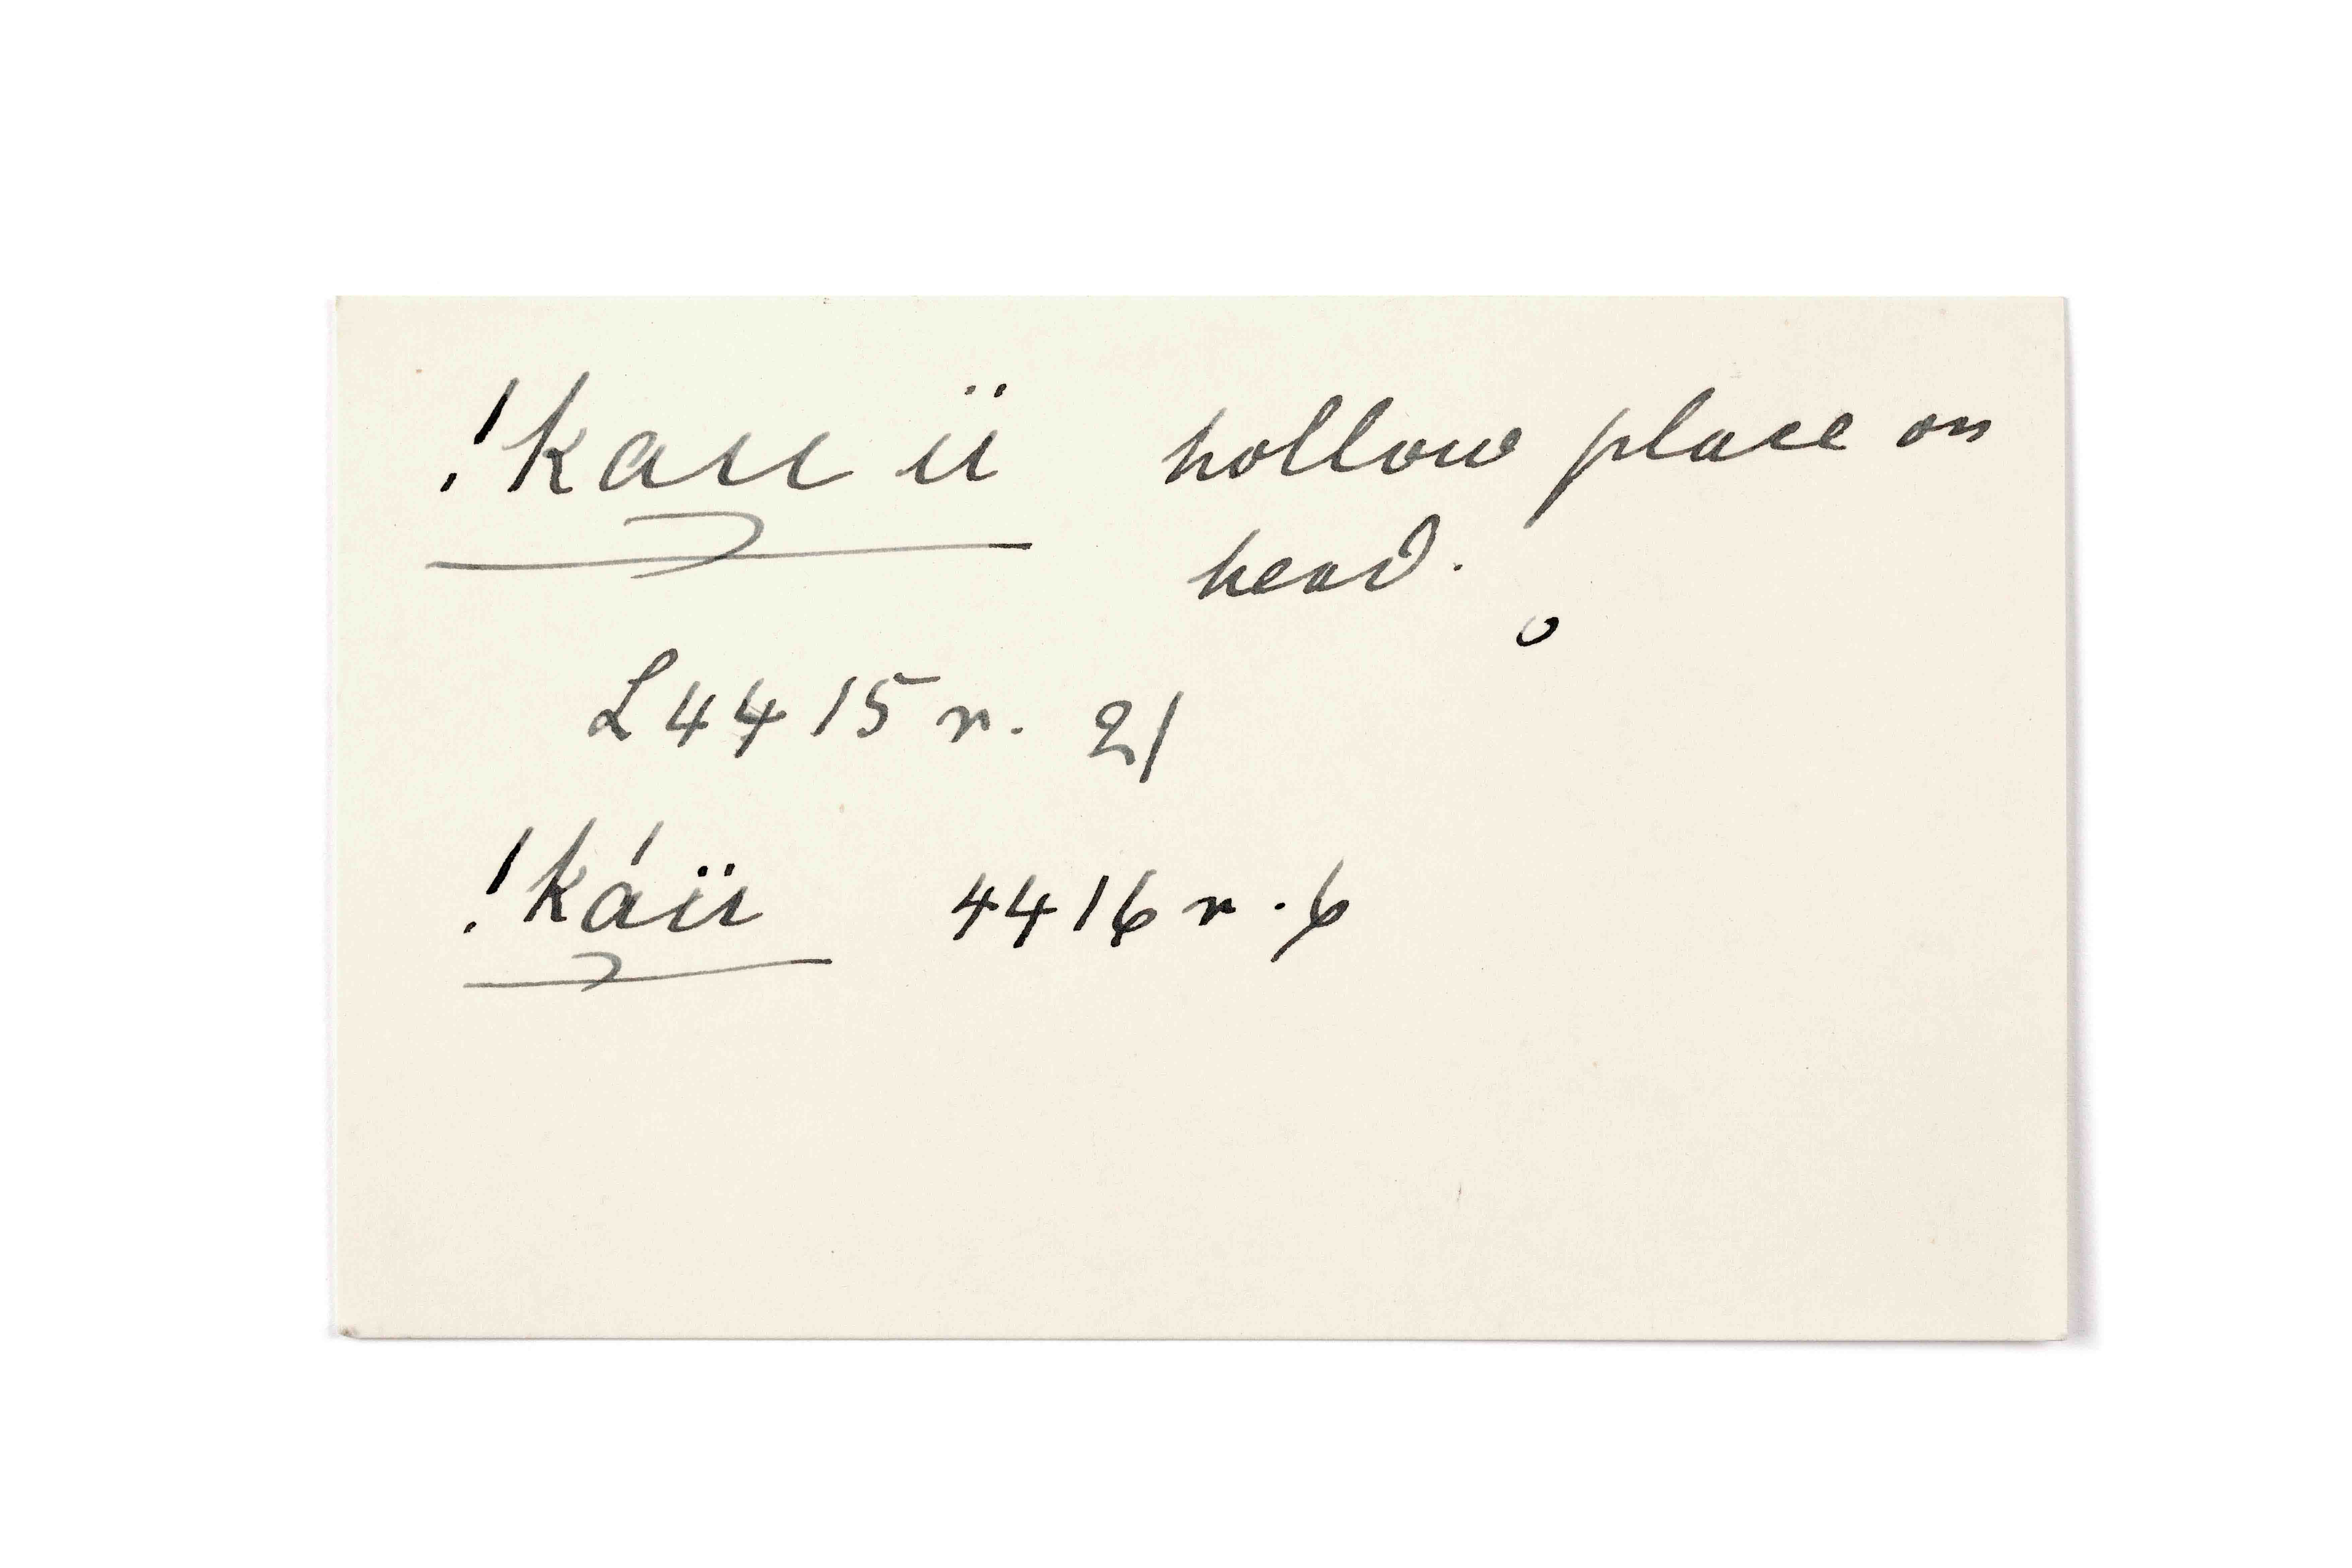 !kauü hollow place on
head.
L4415 r. 21
!káü 4416 r. 6